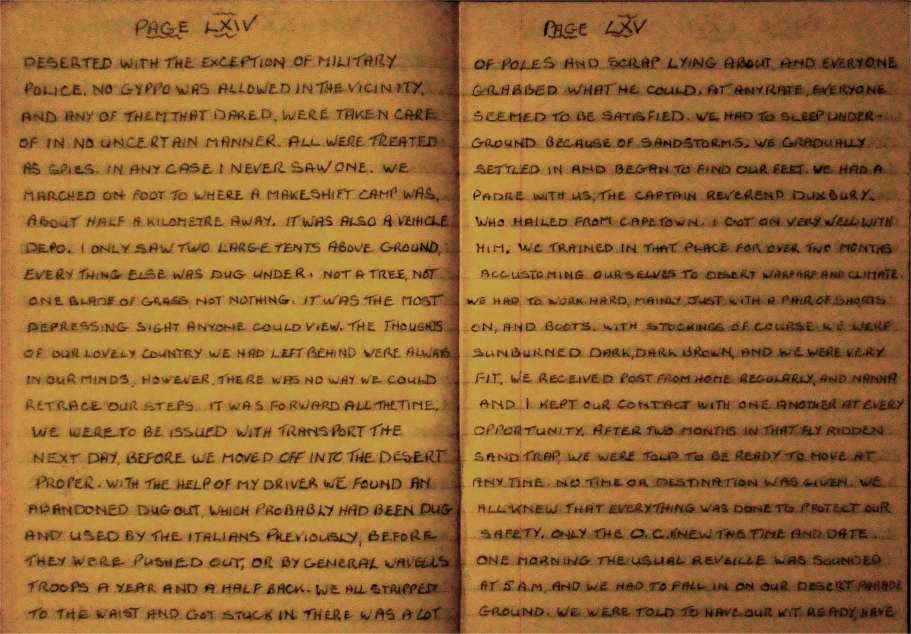 PAGE LXIV
DESERTED WITH THE EXCEPTION OF MILITARY
POLICE. NO GYPPO WAS ALLOWED IN THE VICINITY,
AND ANY OF THEM THAT DARED, WERE TAKEN CARE
OF IN NO UNCERTAIN MANNER. ALL WERE TREATED
AS SPIES. IN ANY CASE I NEVER SAW ONE. WE
MARCHED ON FOOT TO WHERE A MAKESHIFT CAMP WAS,
ABOUT HALF A KILOMETRE AWAY. IT WAS ALSO A VEHICLE
DEPO. I ONLY SAW TWO LARGE TENTS ABOVE GROUND,
EVERY THING ELSE WAS DUG UNDER. NOT A TREE, NOT
ONE BLADE OF GRASS, NOT NOTHING. IT WAS THE MOST
DEPRESSING SIGHT ANYONE COULD VIEW. THE THOUGHTS
OF OUR LOVELY COUNTRY WE HAD LEFT BEHIND WERE ALWAYS
IN OUR MINDS, HOWEVER, THERE WAS NO WAY WE COULD
RETRACE OUR STEPS. IT WAS FORWARD ALL THE TIME.
WE WERE TO BE ISSUED WITH TRANSPORT THE
NEXT DAY, BEFORE WE MOVED OFF INTO THE DESERT
PROPER. WITH THE HELP OF MY DRIVER WE FOUND AN
ABANDONED DUG OUT, WHICH PROBABLY HAD BEEN DUG
AND USED BY THE ITALIANS PREVIOUSLY, BEFORE
THEY WERE PUSHED OUT, OR BY GENERAL WAVELLS
TROOPS A YEAR AND A HALF BACK. WE ALL STRIPPED
TO THE WAIST AND GOT STUCK IN. THERE WAS A LOT
PAGE LXV
OF POLES AND SCRAP LYING ABOUT, AND EVERYONE
GRABBED WHAT HE COULD. AT ANYRATE, EVERYONE
SEEMED TO BE SATISFIED. WE HAD TO SLEEP UNDER-
GROUND BECAUSE OF SANDSTORMS. WE GRADUALLY
SETTLED IN AND BEGAN TO FIND OUR FEET. WE HAD A
PADRE WITH US, THE CAPTAIN REVEREND DUXBURY.
WHO HAILED FROM CAPETOWN. I GOT ON VERY WELL WITH
HIM. WE TRAINED IN THAT PLACE FOR OVER TWO MONTHS
ACCUSTOMING OURSELVES TO DESERT WARFARE AND CLIMATE.
WE HAD TO WORK HARD, MAINLY JUST WITH A PAIR OF SHORTS
ON, AND BOOTS. WITH STOCKINGS OF COURSE WE WERE
SUNBURNED DARK, DARK BROWN, AND WE WERE VERY
FIT. WE RECEIVED POST FROM HOME REGULARLY, AND NANNA
AND I KEPT OUR CONTACT WITH ONE ANOTHER AT EVERY
OPPORTUNITY. AFTER TWO MONTHS IN THAT FLY RIDDEN
SAND TRAP, WE WERE TOLD TO BE READY TO MOVE AT
ANY TIME. NO TIME OR DESTINATION WAS GIVEN. WE
ALL KNEW THAT EVERYTHING WAS DONE TO PROTECT OUR
SAFETY. ONLY THE O.C. KNEW THE TIME AND DATE.
ONE MORNING THE USUAL REVEILLE WAS SOUNDED
AT 5 A.M, AND WE HAD TO FALL IN ON OUR DESERT PARADE
GROUND. WE WERE TOLD TO HAVE OUR KIT READY, HAVE